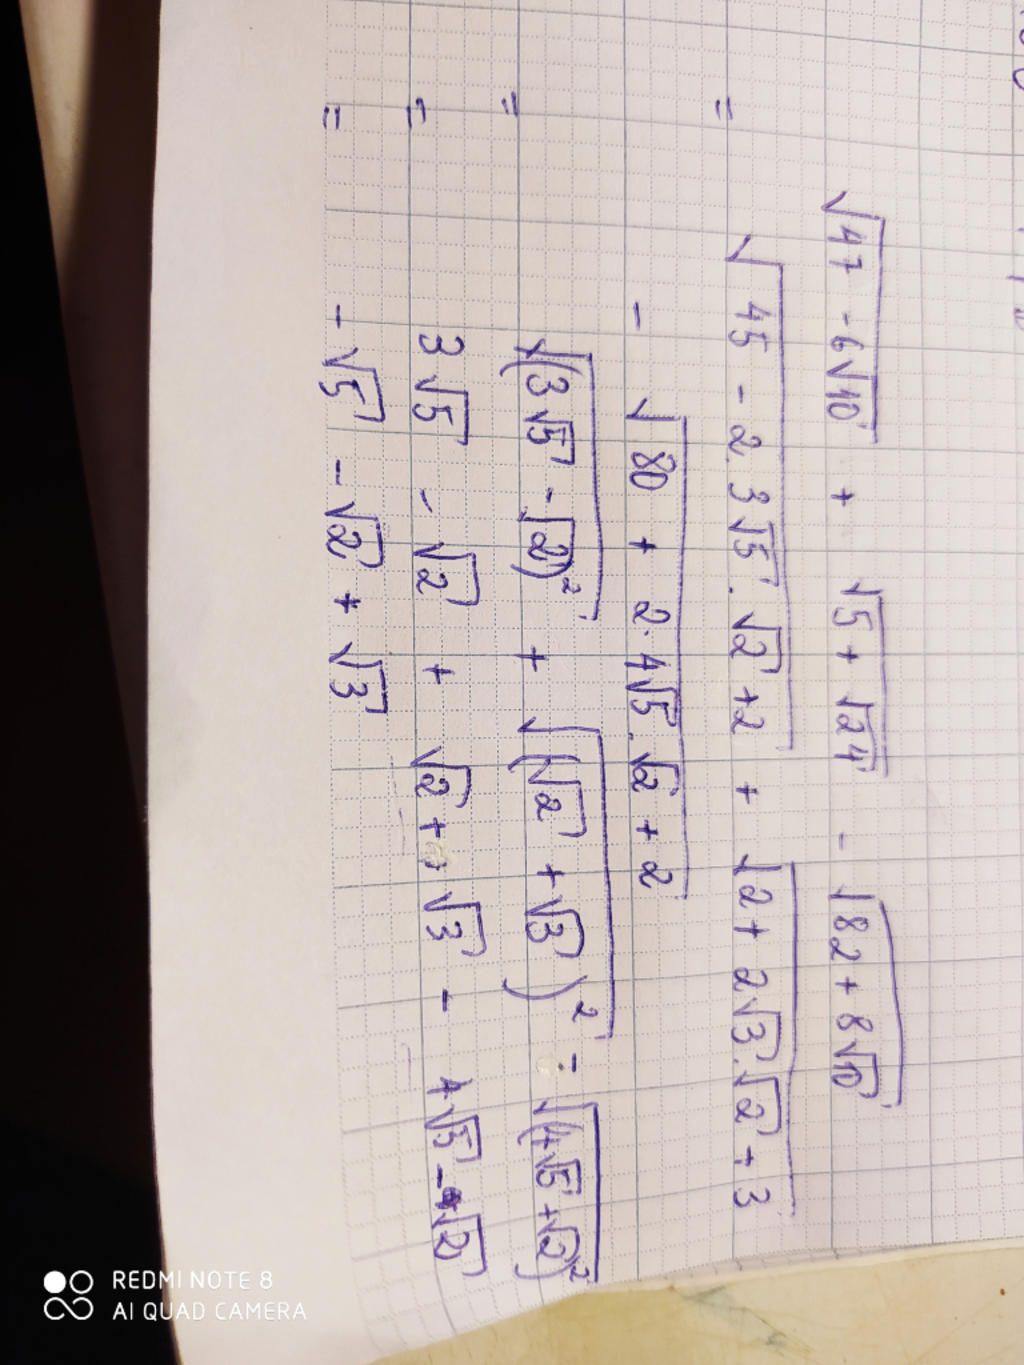 √47 - 6√10 + √5 + √24 - √82 + 8√10
= √45 - 2.3√5.√2 + 2 + √2 + 2√3.√2 + 3
- √80 + 2.4√5.√2 + 2
= √(3√5 - √2)² + √(√2 + √3)² - √(4√5 + √2)²
= 3√5 - √2 + √2 + √3 - 4√5 - √2
= - √5 - √2 + √3
REDMI NOTE 8
AI QUAD CAMERA